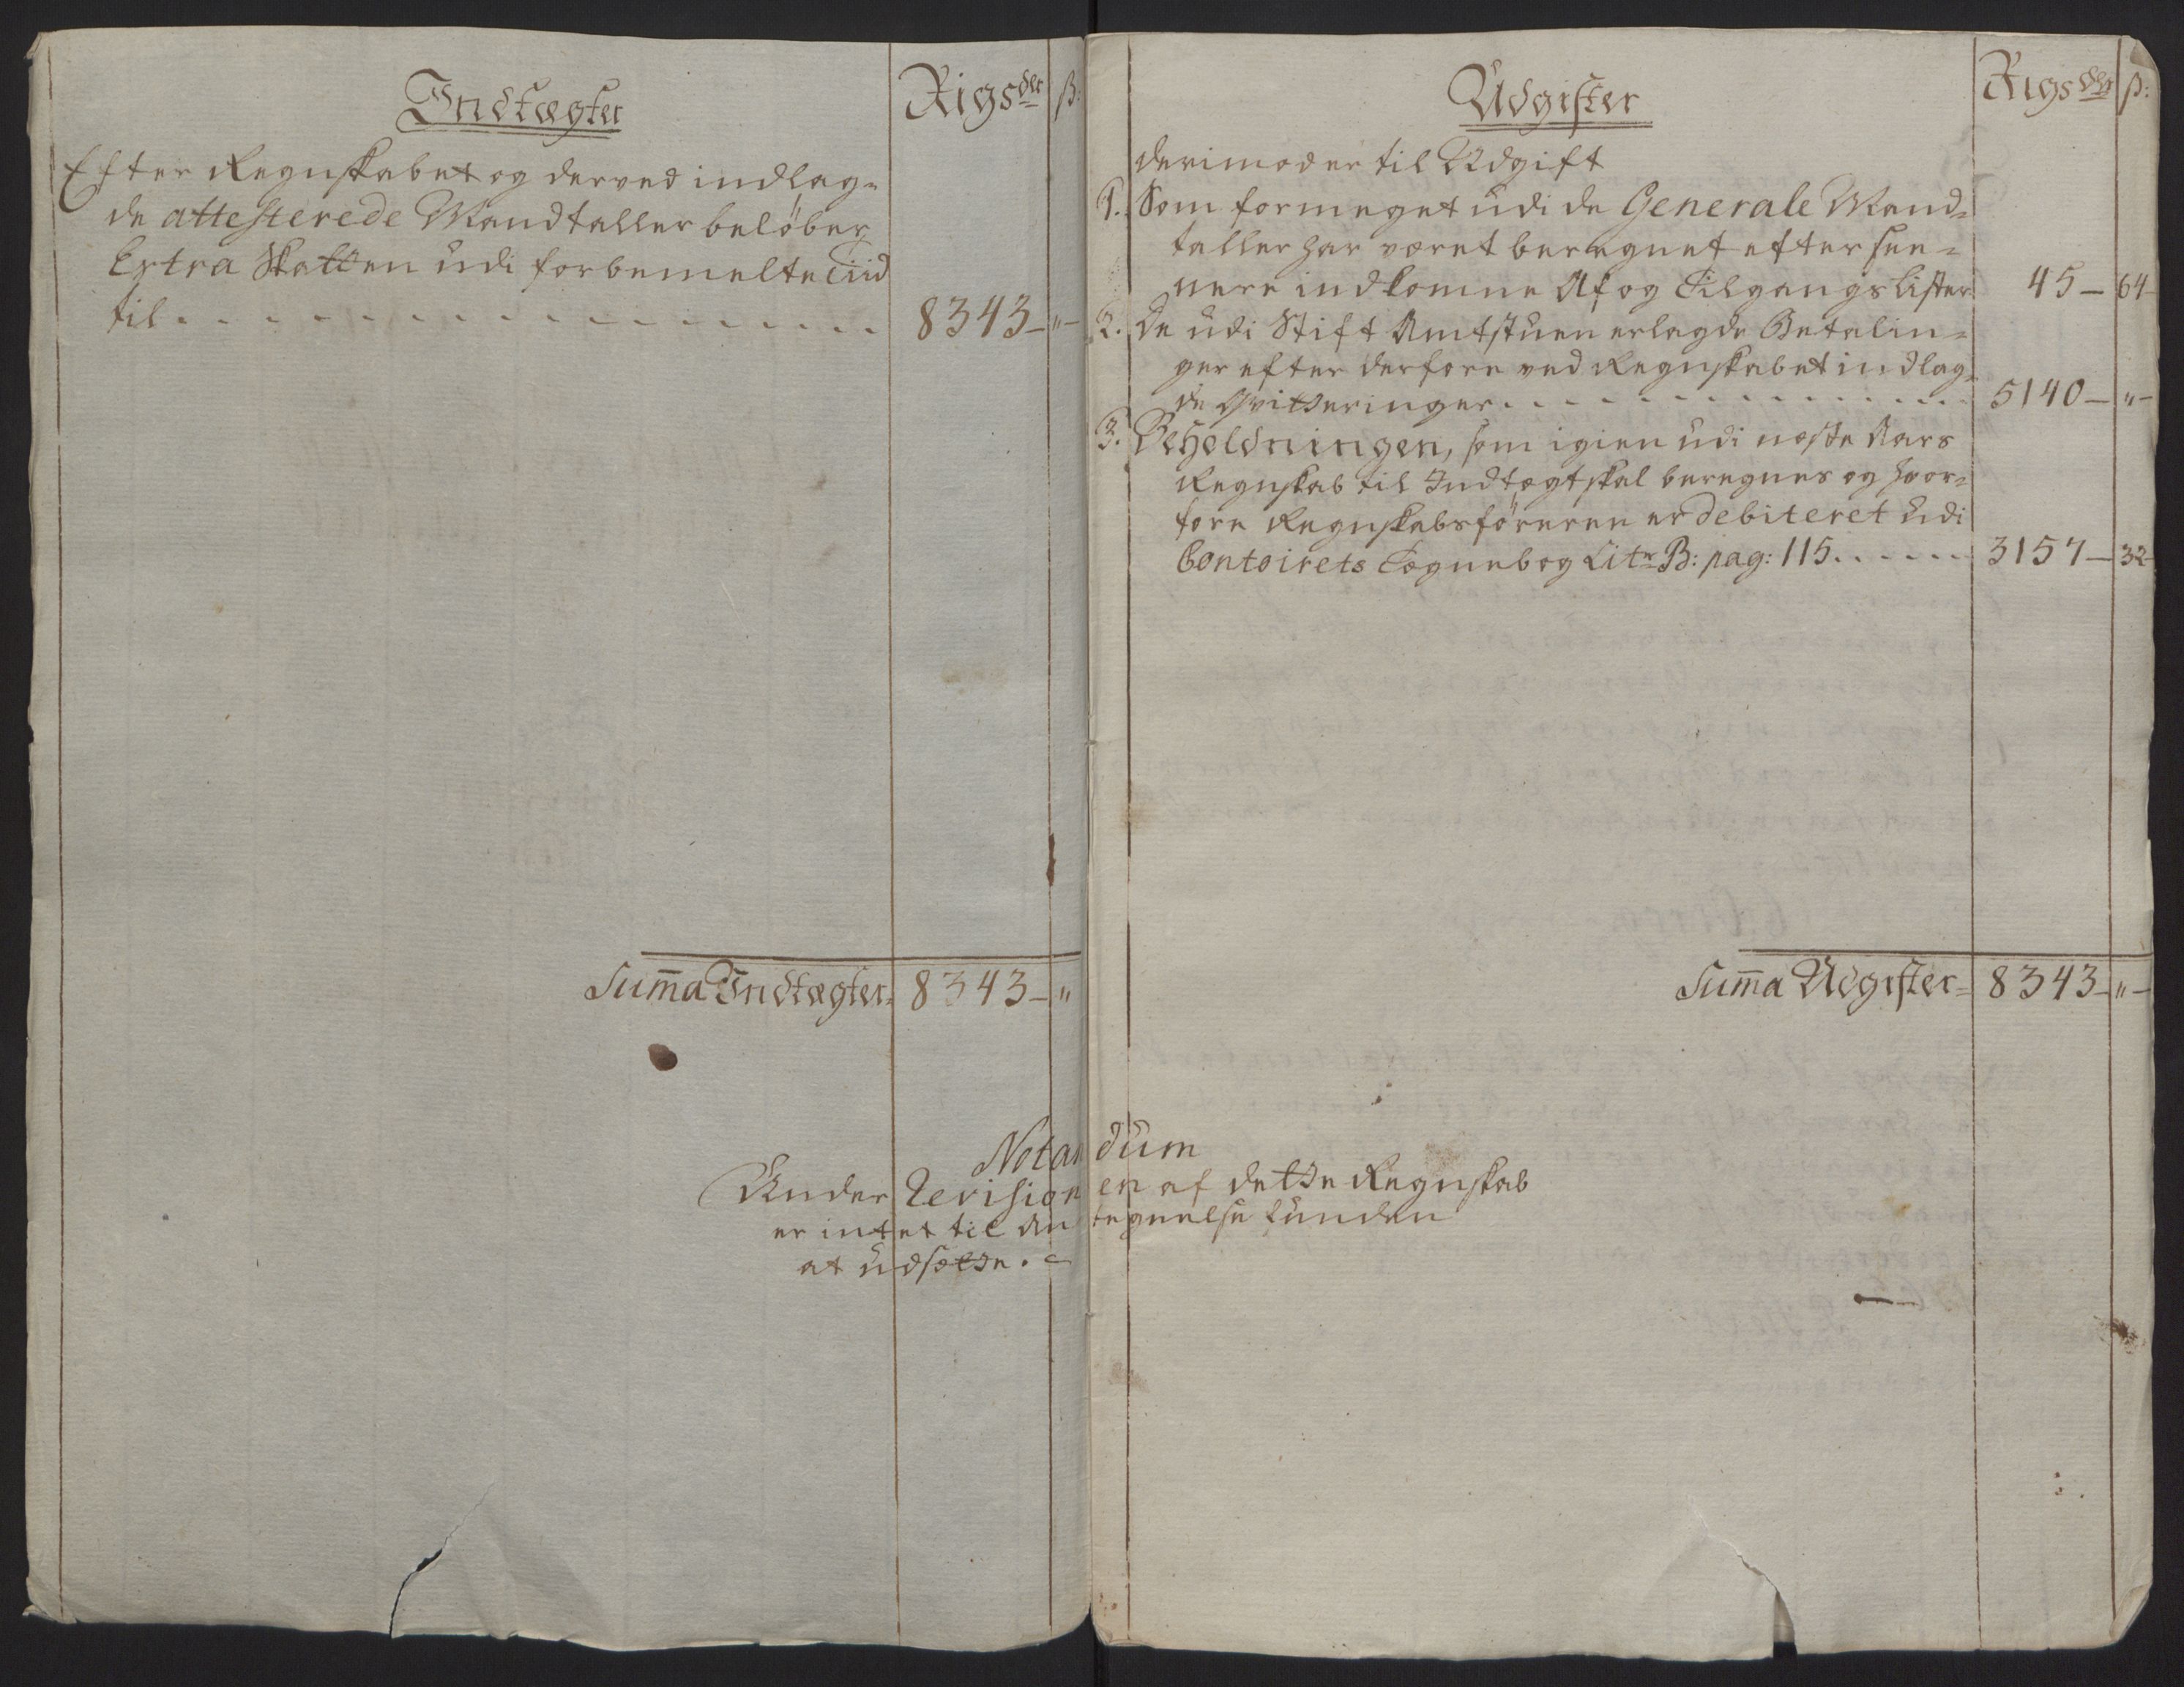 Indtægter
Rigsdlr
ß:
Efter Regnskabet og derved indlag=
de attesterede Mandtaller beløber
Extra Skatten udi forbemelte Tiid
til - - - - - - - - - - - - - - - - 8343 - " -
Summa Indtægter = 8343 - "
Udgifter
Rigsdlr
ß:
derimod er til Udgift
1. Som formeget udi de Generale Mand=
taller har været beregnet efter see=
nere indkomne Af og Tilgangs Lister 45 - 64 -
2. De udi Stift Amtstuen erlagde Betalin=
ger efter derfore ved Regnskabet indlag=
de Qvitteringer - - - - - - - - - - - 5140 - " -
3. Beholdningen, som igien udi næste Aars
Regnskab til Indtægt skal beregnes og hvor=
fore Regnskabsføreren er debiteret udi
Contoirets Tegnebog Litr B: pag: 115 - - - - - 3157 - 32 -
Summa Udgifter = 8343 - " -
Notandum
Under Revisionen af dette Regnskab
er intet til Antegnelse funden
at udsætte. -